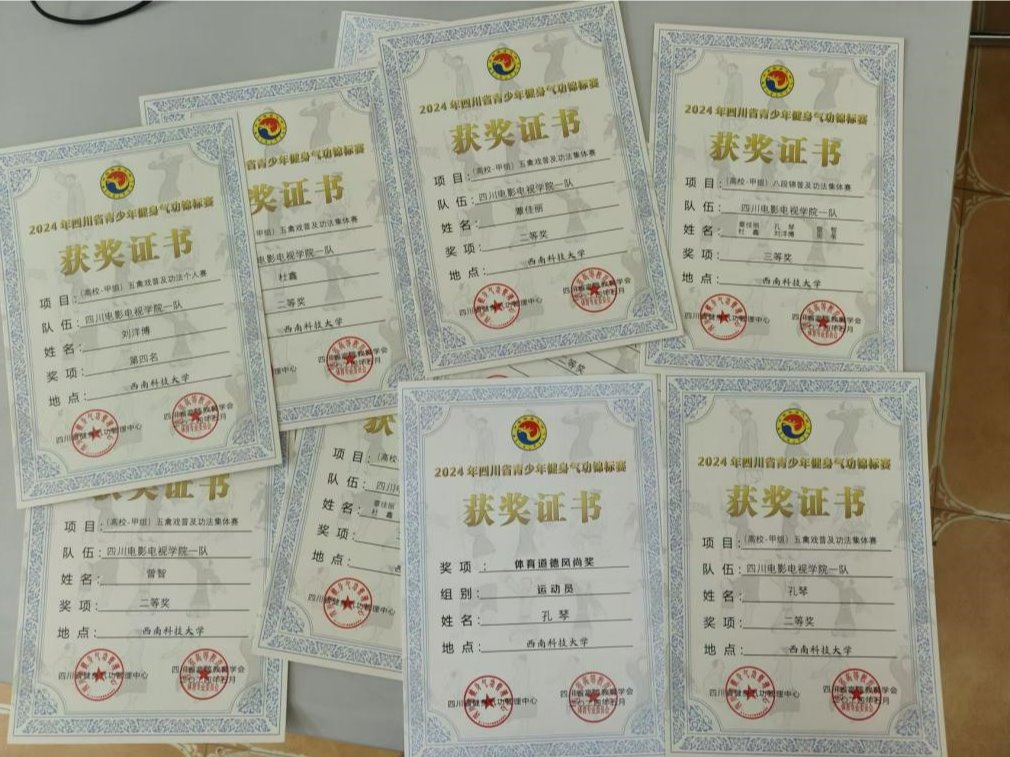 2024年四川省青少年健身气功锦标赛
获奖证书
项目：（高校-甲组）五禽戏普及功法个人赛
队伍：四川电影电视学院一队
姓名：刘洋博
奖项：第四名
地点：西南科技大学
四川省健身气功管理中心
省青少年健身气功锦标赛
奖证书
甲组）五禽戏普及功法集体赛
电影电视学院一队
杜鑫
二等奖
西南科技大学
2024年四川省青少年健身气功锦标赛
获奖证书
项目：（高校-甲组）五禽戏普及功法集体赛
队伍：四川电影电视学院一队
姓名：覃佳丽
奖项：二等奖
地点：西南科技大学
四川省健身气功管理中心
2024年四川省青少年健身气功锦标赛
获奖证书
项目：（高校-甲组）八段锦普及功法集体赛
队伍：四川电影电视学院一队
姓名：覃佳丽 孔琴
杜鑫 刘洋博
奖项：三等奖
地点：西南科技大学
四川省健身气功管理中心
等奖
获奖证书
项目：（高校-甲组）五禽戏普及功法集体赛
队伍：四川电影电视学院一队
姓名：曾智
奖项：二等奖
地点：西南科技大学
四川省健身气功管理中心
获
项目：（高校
队伍：四川
姓名：覃佳丽
杜鑫
奖项：
地点：
2024年四川省青少年健身气功锦标赛
获奖证书
奖项：体育道德风尚奖
组别：运动员
姓名：孔琴
地点：西南科技大学
四川省健身气功管理中心
2024年四川省青少年健身气功锦标赛
获奖证书
项目：（高校-甲组）五禽戏普及功法集体赛
队伍：四川电影电视学院一队
姓名：孔琴
奖项：二等奖
地点：西南科技大学
四川省健身气功管理中心